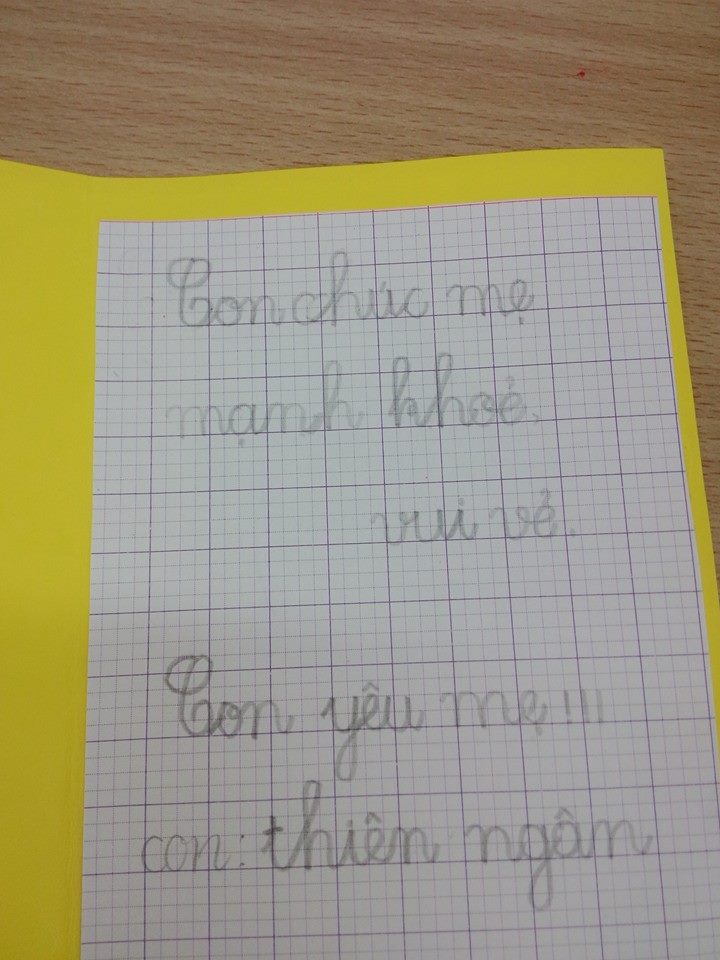 Con chúc mẹ
mạnh khoẻ.
vui vẻ.
Con yêu mẹ!!!
con: thiên ngân